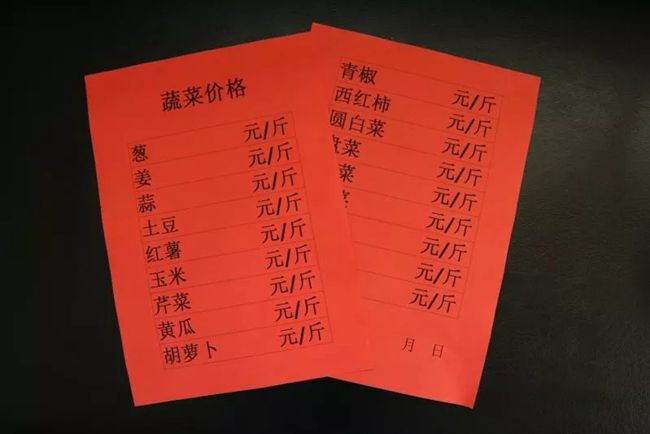 蔬菜价格
葱 元/斤
姜 元/斤
蒜 元/斤
土豆 元/斤
红薯 元/斤
玉米 元/斤
芹菜 元/斤
黄瓜 元/斤
胡萝卜 元/斤
青椒 元/斤
西红柿 元/斤
圆白菜 元/斤
菜 元/斤
菜 元/斤
元/斤
元/斤
元/斤
元/斤
月 日